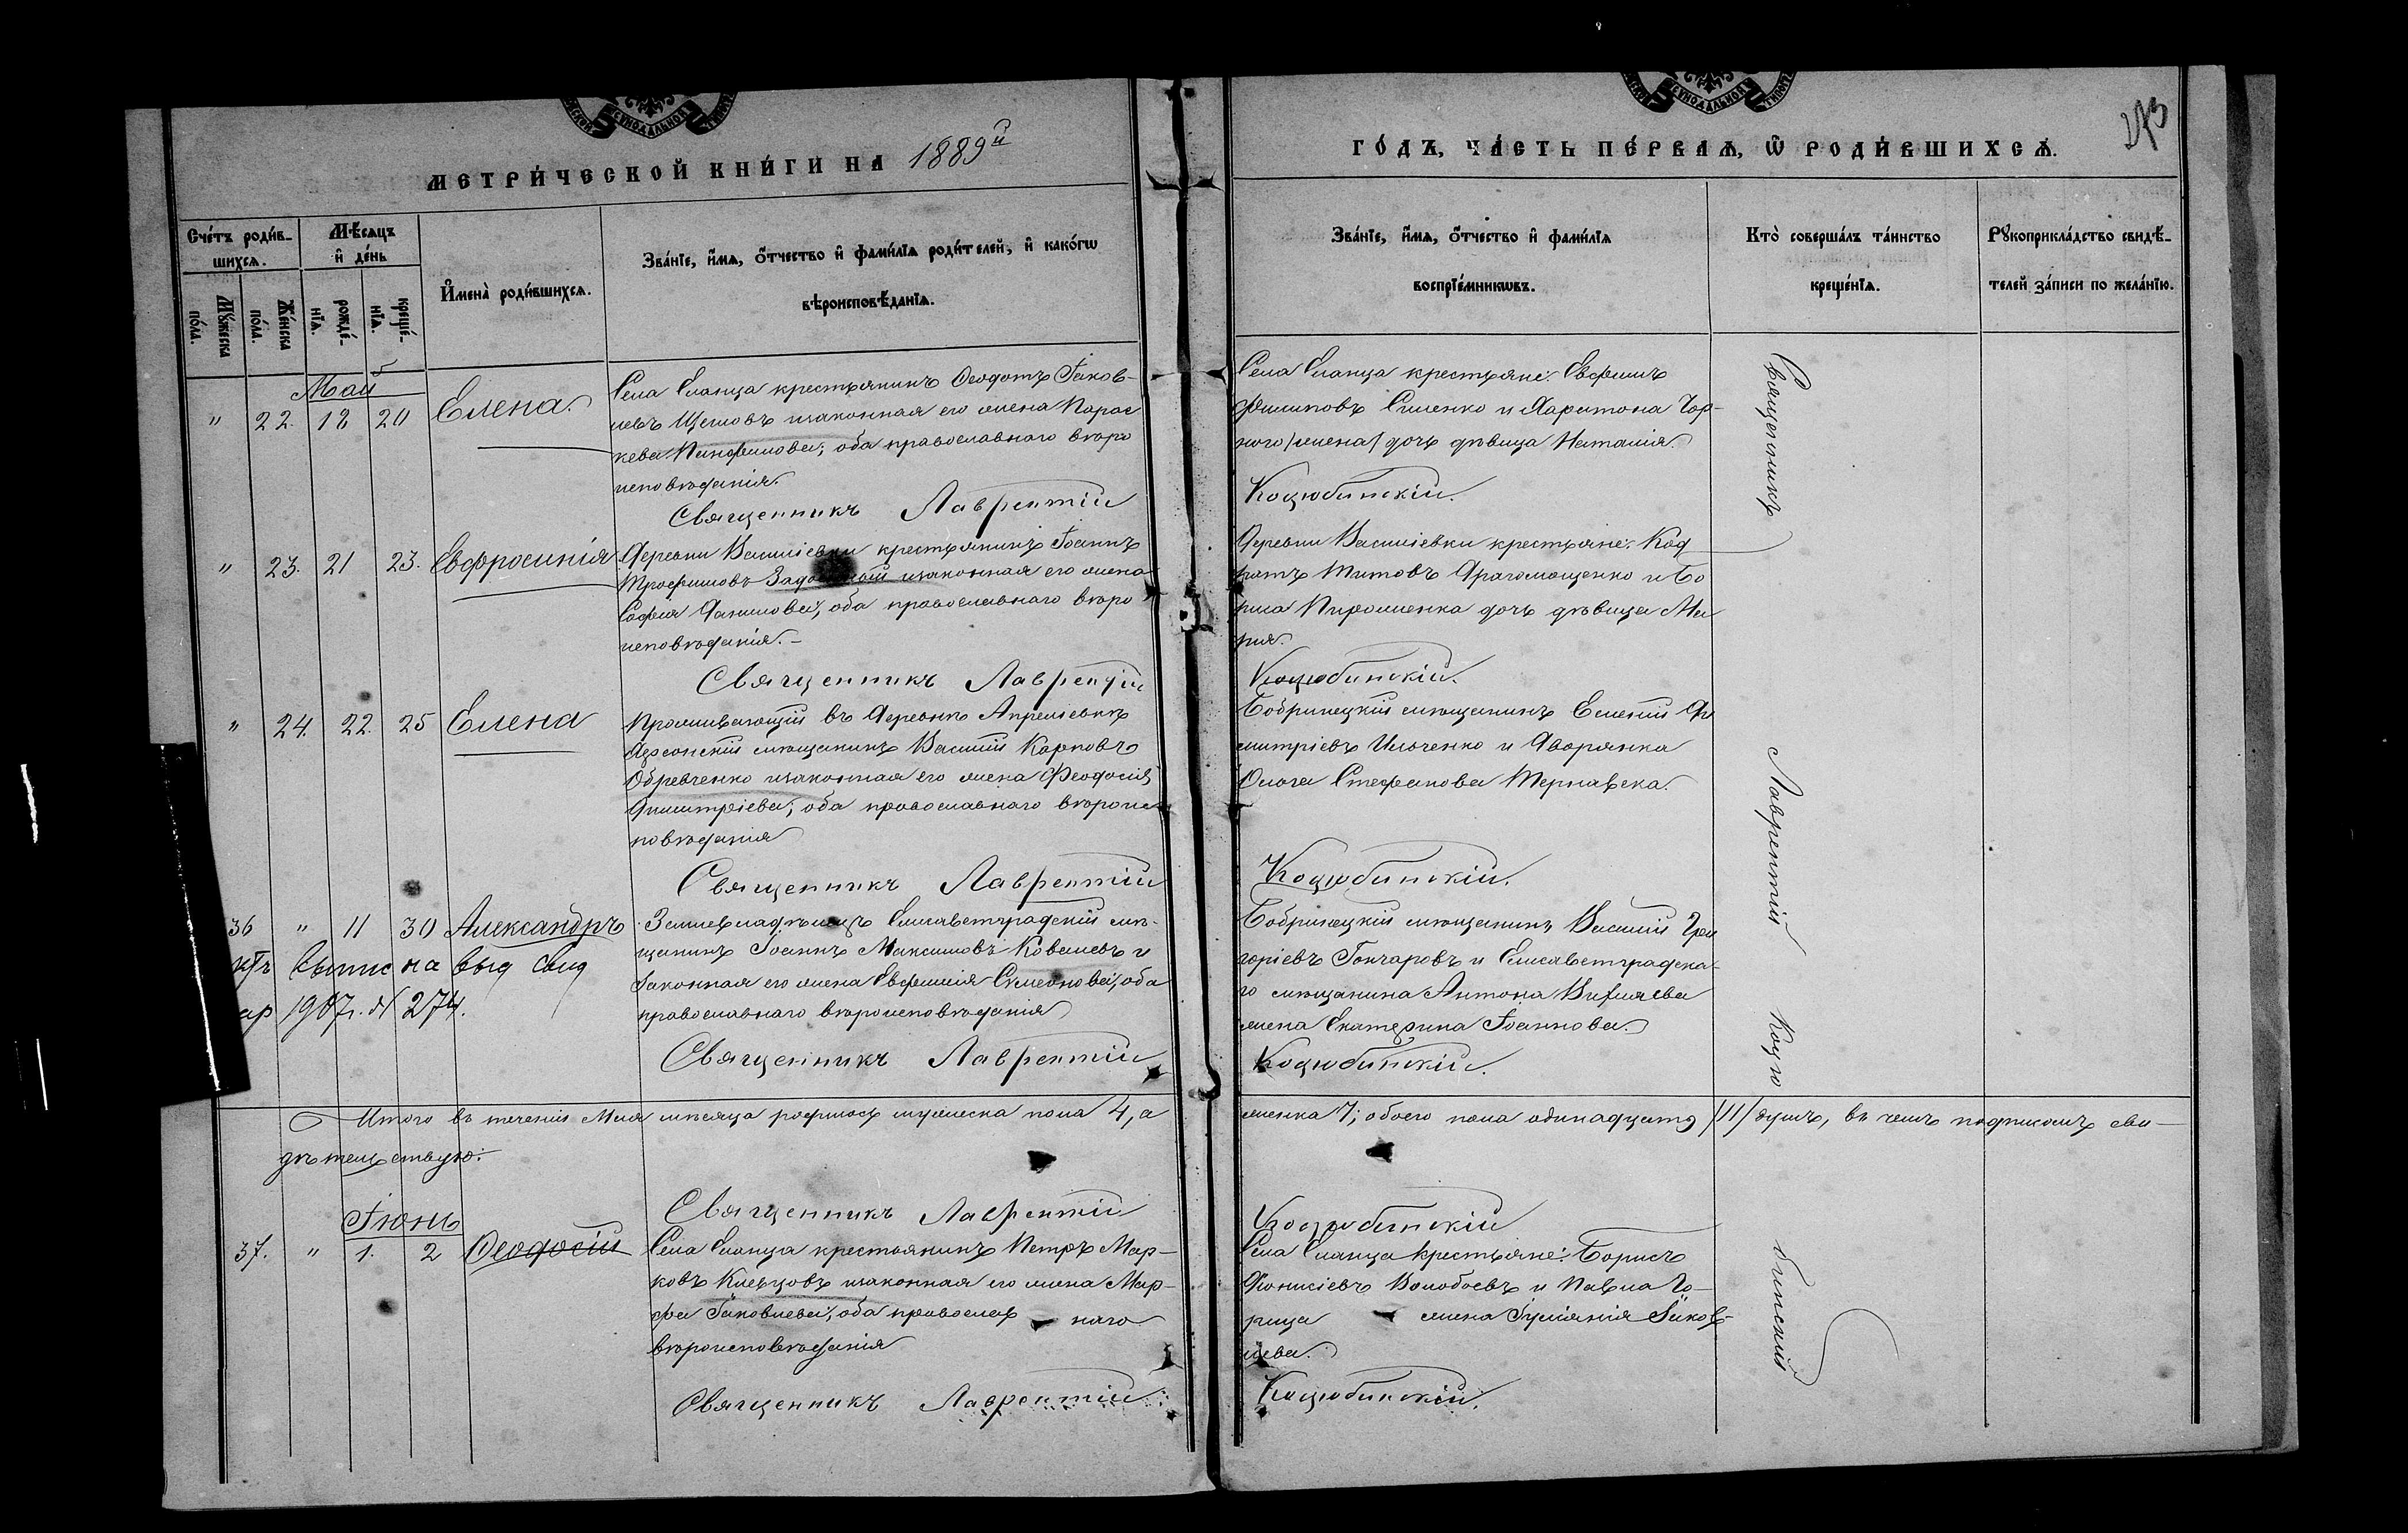 МЕТРИ́ЧЕСКОЙ КНИ́ГИ НА 1889й
ГО́ДЪ, ЧА́СТЬ ПЕ́РВАѦ, Ѡ҆ РОДИ́ВШИХСѦ.
273
Сче́тъ роди́в-
шихсѧ.
Мѣ́сѧцъ
и҆ де́нь
И҆мена̀ роди́вшихсѧ.
Зва́нїе, и҆́мѧ, ѻ҆́тчество и҆ фами́лїѧ роди́телей, и҆ како́гѡ
вѣроисповѣ́данїѧ.
Мꙋ́жеска по́ла.
Же́нска по́ла.
рожде́-нїѧ.
креще́-нїѧ.
Зва́нїе, и҆́мѧ, ѻ҆́тчество и҆ фами́лїѧ
воспрїе́мникѡвъ.
Кто̀ соверша́лъ та́инство
креще́нїѧ.
Рꙋкоприкла́дство свидѣ́-
телей за́писи по жела́нїю.
Май
" 22. 18 20 Елена.
Села Еланца крестьянинъ Ѳеодотъ Іаков-
левъ изаконная его жена Парас
кева Панфилова; оба православнаго вѣро
исповѣданія.
Священникъ Лаврентій
Села Еланца крестьяне: Евфимъ
Филиповъ Силенко и Харитона Чор-
ного /жена/ дочь дѣвица Наталія.
Коцюбинскій.
" 23. 21 23. Евфросинія
Деревни Василіевки крестьянинъ Іоаннъ
Трофимовъ изаконная его жена
Софія Данилова; оба православнаго вѣро
исповѣданія.-
Священникъ Лаврентій
Деревни Василіевки крестьяне: Код
ратъ Титовъ Драгомощенко и Бо
риса Пироженка дочь дѣвица Ма
рія.
Коцюбинскій.
" 24. 22. 25 Елена
Проживающій въ Деревнѣ Апреліевкѣ
Херсонскій мѣщанинъ Василій Карповъ
Обревченко изаконная его жена Феодосія
Димитріева; оба православнаго вѣроис
повѣданія
Священникъ Лаврентій
Бобринецкій мѣщанинъ Евгеній Ди
митріевъ Ильченко и Дворянка
Ольга Стефанова Тернавска.
Коцюбинскій.
36 " 11 30 Александръ
выпис на выд свид
1907 г. N 274.
Землевладѣлецъ Елисаветградскій мѣ-
щанинъ Іоаннъ Максимовъ Ковалевъ и
Законная его жена Евфимія Симеонова; оба
православнаго вѣроисповѣданія
Священникъ Лаврентій
Бобринецкій мѣщанинъ Василій Гри
горіевъ Гончаровъ и Елисаветградска-
го мѣщанина Антона
жена Екатерина Іоаннова.
Коцюбинскій.
Итого въ теченіи Мая мѣсяца родилось мужеска пола 4, а
женска 7; обоего пола одинадцать /11/ душъ, въ чемъ подписомъ сви-
дѣтельствую:
Священникъ Лаврентій
Коцюбинскій
Іюнь
37. " 1. 2 Ѳеодосій
Села Еланца крестьянинъ Петръ Мар-
ковъ Клевцовъ изаконная его жена Мар-
фа Іаковлева; оба православ наго
вѣроисповѣданія
Священникъ Лаврентій
Села Еланца Крестьяне: Борисъ
Діонисіевъ Волобоевъ и Павла Го-
рица жена Іуліанія Іаков-
лева.
Коцюбинскій.
Священникъ
Лаврентій
Коцю
бинскій